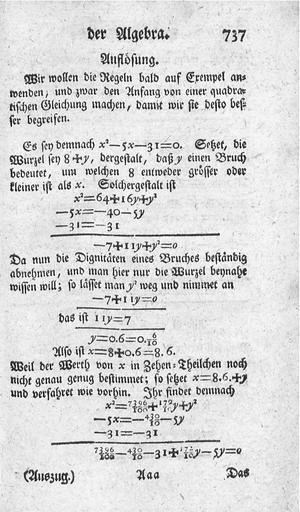 der Algebra. 737
Auflösung.
Wir wollen die Regeln bald auf Exempel an-
wenden, und zwar den Anfang von einer quadra-
tischen Gleichung machen, damit wir sie desto bes-
ser begreifen.
Es sey demnach x²−5x−31=0. Setzet, die
Wurzel sey 8+y, dergestalt, daß y einen Bruch
bedeutet, um welchen 8 entweder grösser oder
kleiner ist als x. Solchergestalt ist
x²=64+16y+y²
−5x=−40−5y
−31=−31
−7+11y+y²=0
Da nun die Dignitäten eines Bruches beständig
abnehmen, und man hier nur die Wurzel beynahe
wissen will; so lässet man y² weg und nimmet an
−7+11y=0
das ist 11y=7
y=0.6=0.6/10
Also ist x=8+0.6=8.6.
Weil der Werth von x in Zehen-Theilchen noch
nicht genau genug bestimmet; so setzet x=8.6.+y
und verfahret wie vorhin. Ihr findet demnach
x²=7396/100+172/10y+y²
−5x=−430/10−5y
−31=−31
7396/100−430/10−31+172/10y−5y=0
(Auszug.) Aaa Das